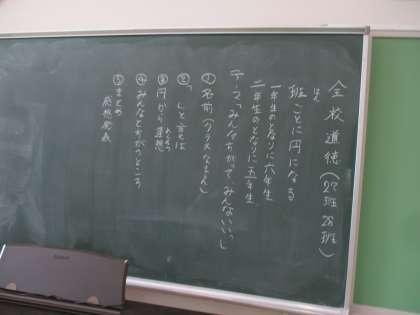 全校道徳(27班28班)
はん
班ごとに円になる
一年生のとなりに六年生
二年生のとなりに五年生
テーマ「みんなちがって みんないい」
①名前(クラスなまえ)
②
③円から連想
④みんなとちがうところ
⑤まとめ
感想発表